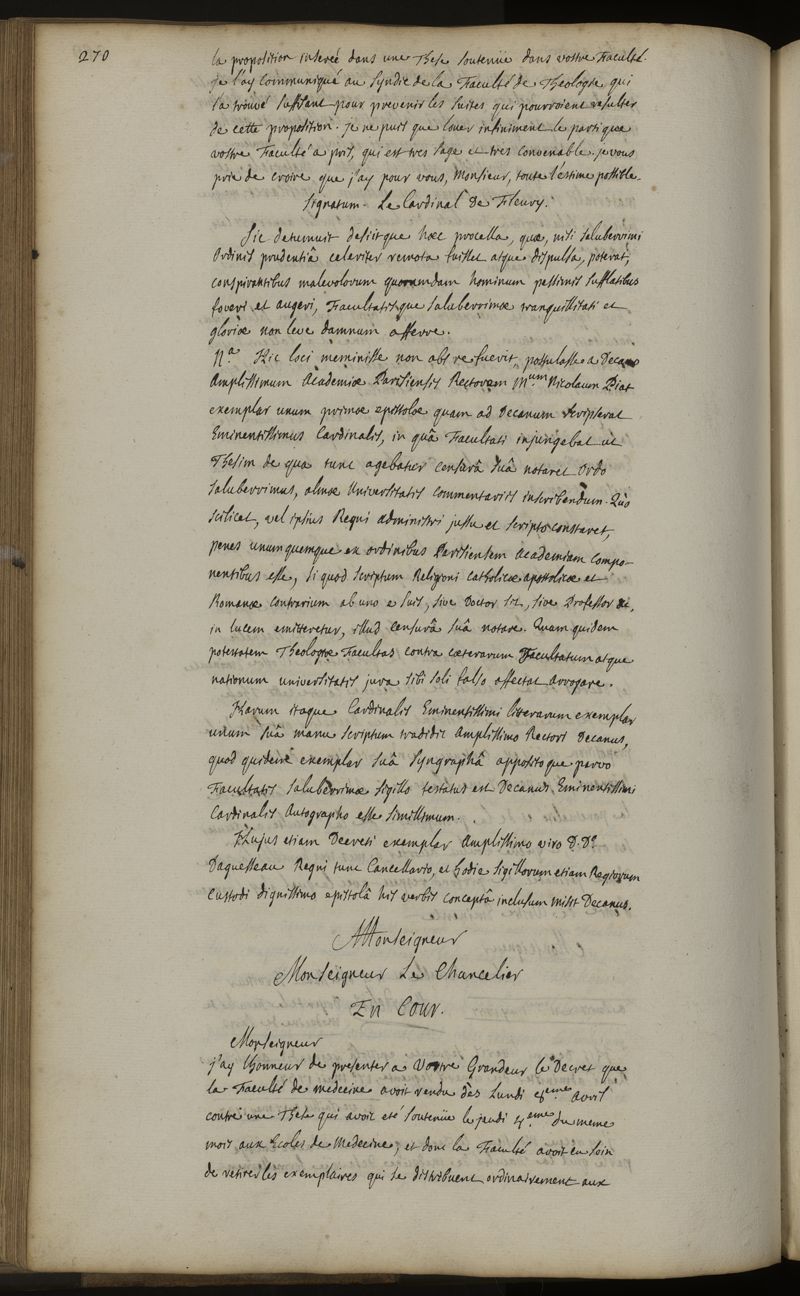 270
la proposition inserée dans une These soutenüe dans vostre Faculté.
je l'ay communiqué au syndic de la Faculté de Theologie, qui
l'a trouvé suffisant pour prevenir les suites qui pourroient resulter
de cette proposition. je ne puis que louer infiniment le parti que
vostre Faculté a pris, qui est tres sage et tres convenable. je vous
prie de croire que j'ay pour vous, Monsieur, toute l'estime possible.
signatum. Le Cardinal De Fleury.
Sic detumuit desiitque hæc procella, quæ, nisi saluberrimi
Ordinis prudentiâ celeriter remota fuisset atque dispulsa, poterat,
conspirantibus malevolorum quorumdam hominum pessimis sufflatibus
foveri et augeri, Facultatisque saluberrimæ tranquillitati et
gloriæ non leve damnum afferre.
N.a Hic loci meminisse non abs re fuerit, postulasse a Decano
Amplissimum Academiæ Parisiensis Rectorem M.um Nicolaum Piat
exemplar unum primæ epistolæ quam ad Decanum scripserat
Eminentissimus Cardinalis, in quâ Facultati injungebat ut
Thesim de qua tunc agebatur censurâ suâ notaret Ordo
saluberrimus, almæ Universitatis commentariis inscribendum. Quo
scilicet, vel ipsius Regni administri jussu et scripto constaret,
penes unumquemque ex ordinibus Parisiensem Academiam compo-
nentibus esse, si quod scriptum Religioni catholicæ apostolicæ et
Romanæ contrarium ab uno e suis, sive Doctor sit, sive Professor &c,
in lucem emitteretur, illud censurâ suâ notare. Quam quidem
potestatem Theologiæ Facultas contra cæterarum Facultatum atque
nationum universitatis jura sibi soli falso affectat arrogare.
Harum itaque Cardinalis Eminentissimi litterarum exemplar
unum suâ manu scriptum tradidit Amplissimo Rectori Decanus,
quod quidem exemplar suâ syngraphâ appositoque parvo
Facultatis saluberrimæ sigillo testatus est Decanus Eminentissimi
Cardinalis Autographo esse simillimum.
Hujus etiam Decreti exemplar Amplissimo viro D.D.
Daguesseau Regni tunc Cancellario, et hodie sigillorum etiam Regiorum
Custodi dignissimo epistolâ his verbis conceptâ inclusum misit Decanus.
A Monseigneur
Monseigneur Le Chancelier
En Cour.
Monseigneur
j'ay l'honneur de presenter a Vostre Grandeur le Decret que
la Faculté de medecine avoit rendu dès Lundi eme avril
contre une These qui avoit eté soutenüe le jeudi eme du meme
mois aux Ecoles de Medecine, et dont la Faculté avoit eu soin
de retirer les exemplaires qui se distribuent ordinairement aux